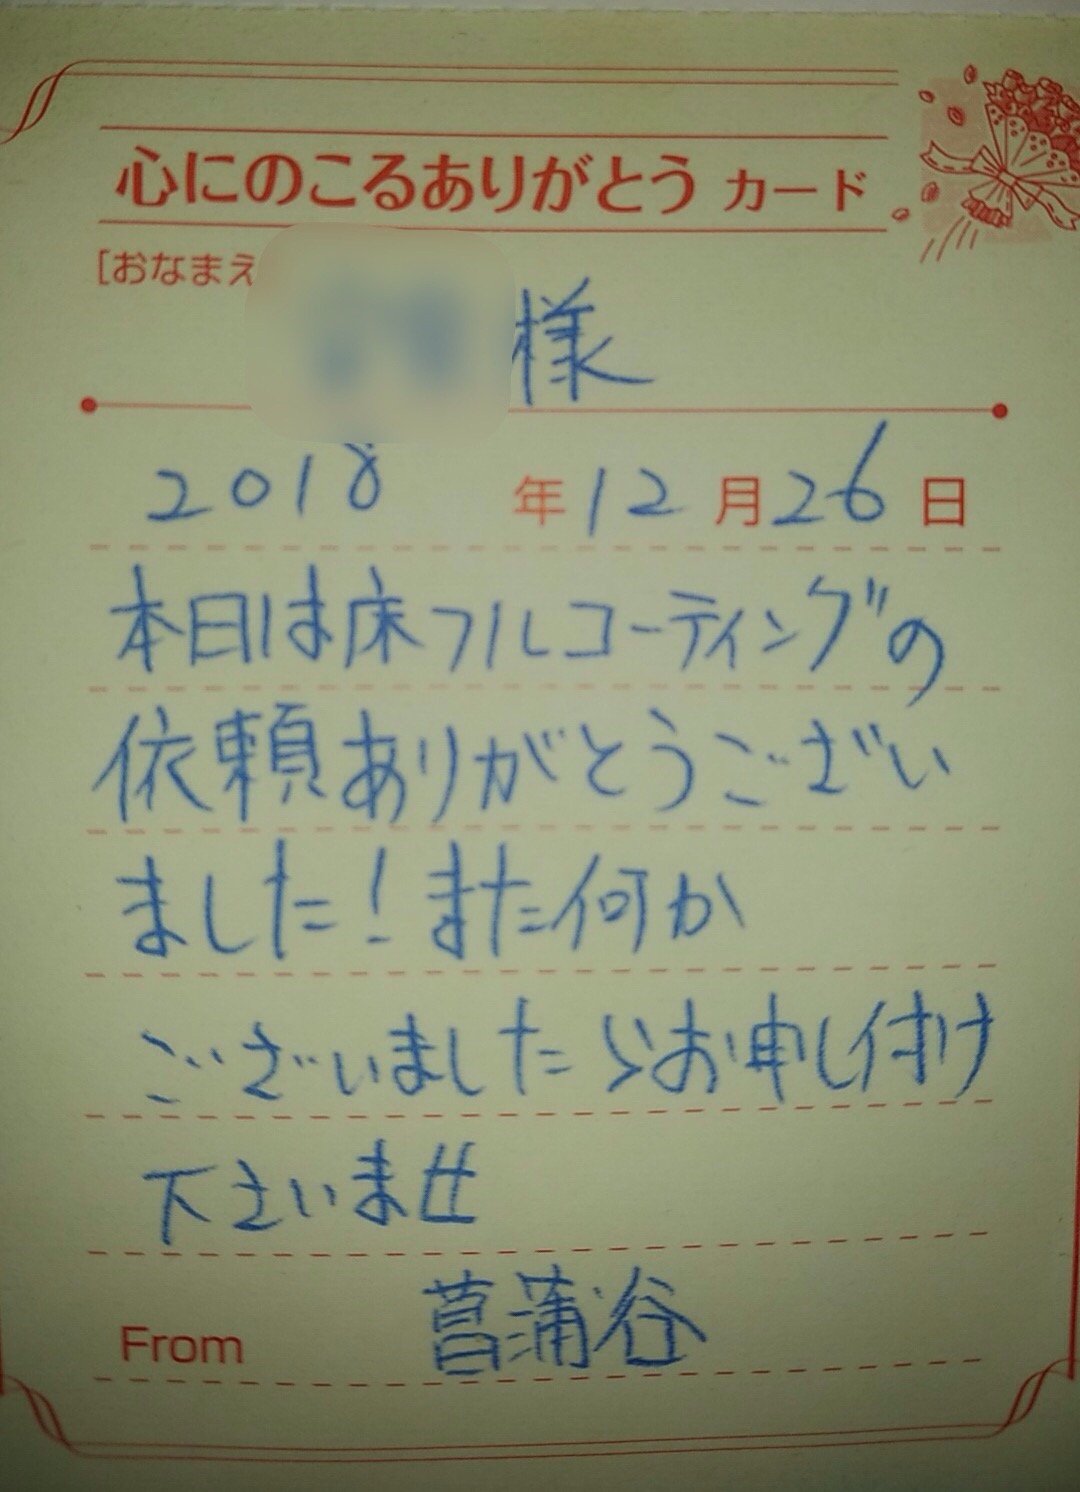 心にのこるありがとう カード
[おなまえ
様
2018 年 12 月 26 日
本日は床フルコーティングの
依頼ありがとうござい
ました！また何か
ございましたらお申し付け
下さいませ
From 菖蒲谷